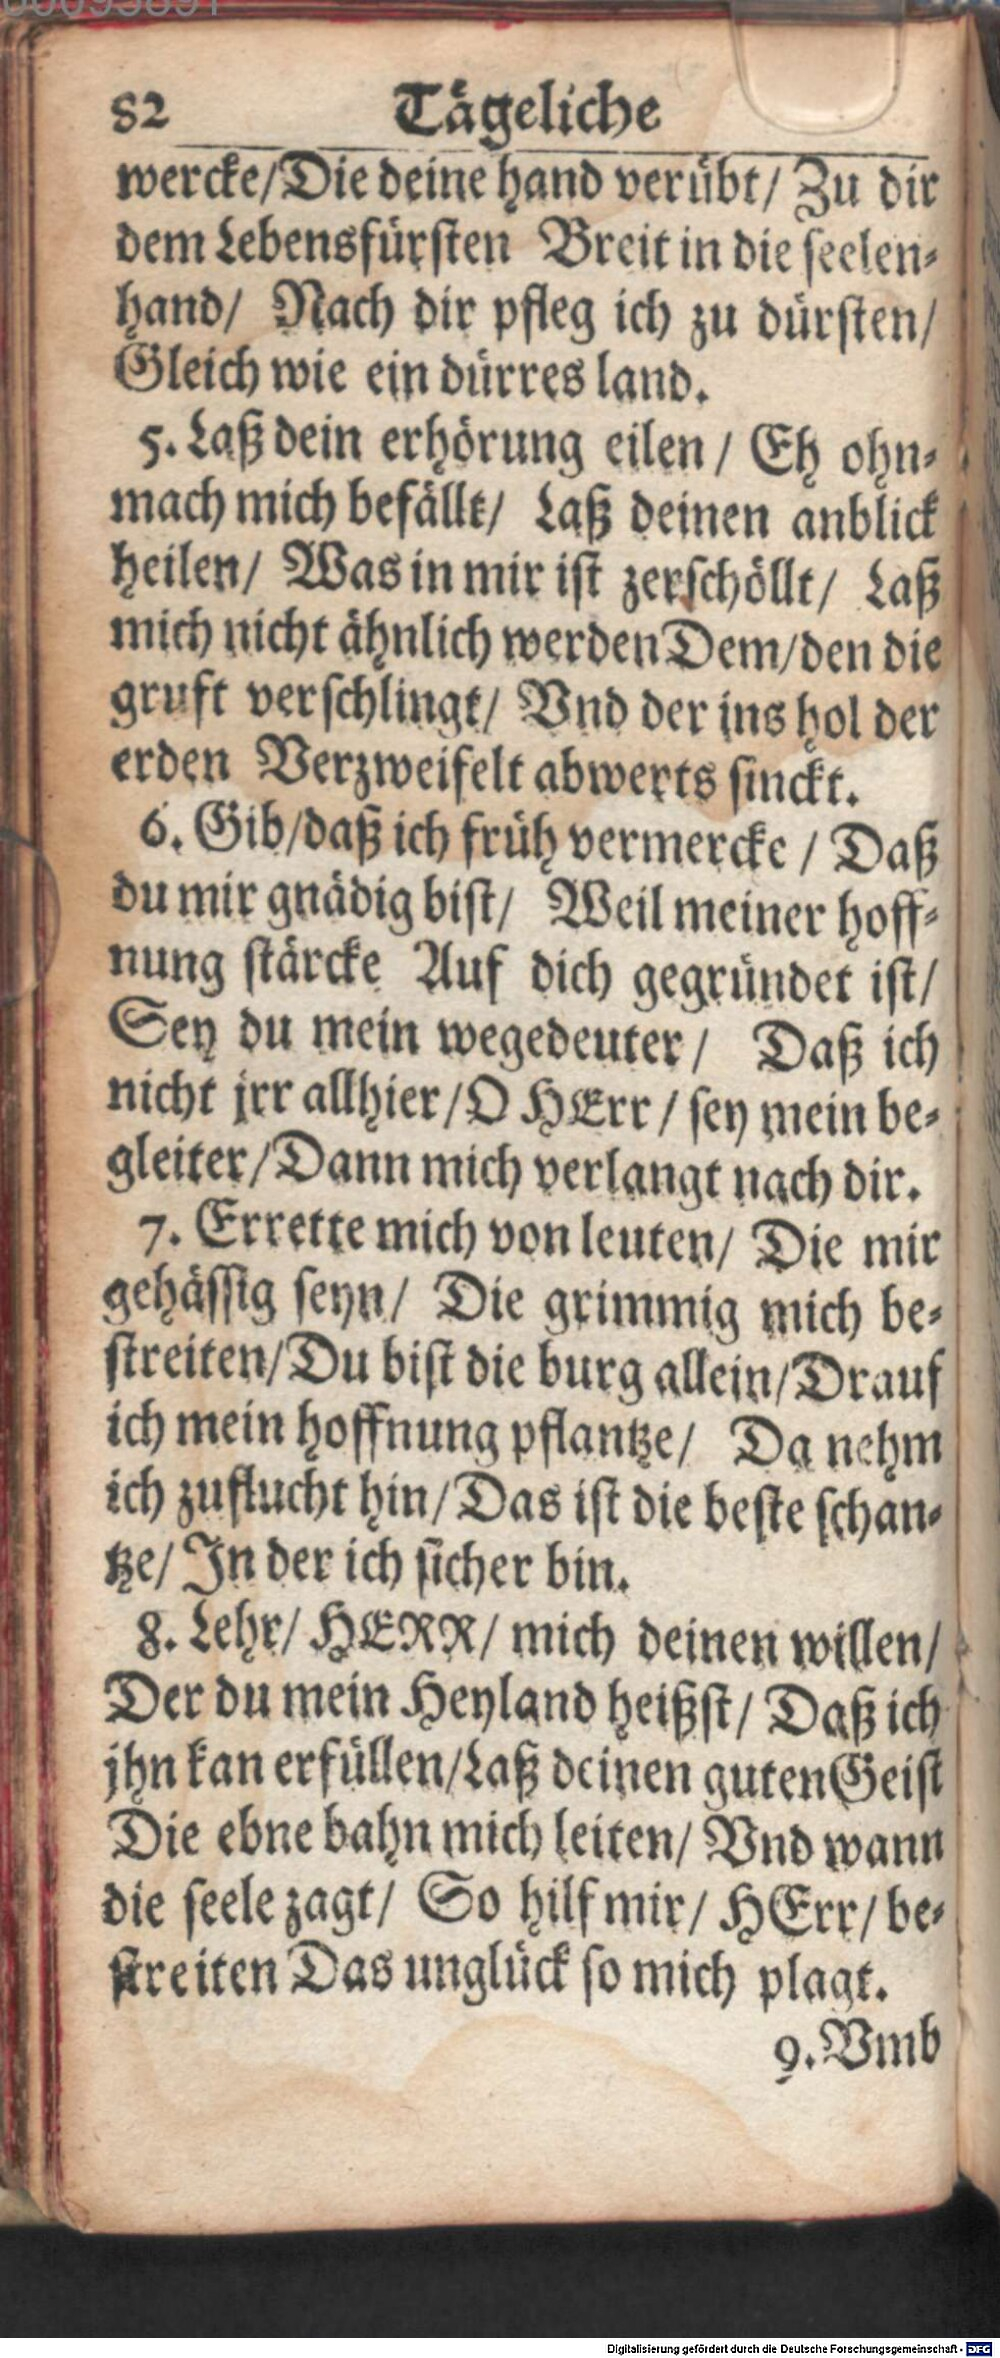 00093891
82 Tägeliche
wercke/Die deine hand verübt/ Zu dir
dem Lebensfürsten Breit in die seelen-
hand/ Nach dir pfleg ich zu dürsten/
Gleich wie ein dürres land.
5. Laß dein erhörung eilen / Eh ohn-
mach mich befällt/ Laß deinen anblick
heilen/ Was in mir ist zerschöllt/ Laß
mich nicht ähnlich werden Dem/den die
gruft verschlingt/ Vnd der ins hol der
erden Verzweifelt abwerts sinckt.
6. Gib/daß ich früh vermercke / Daß
du mir gnädig bist/ Weil meiner hoff-
nung stärcke Auf dich gegründet ist/
Sey du mein wegedeuter / Daß ich
nicht jrr allhier/O HErr / sey mein be-
gleiter/Dann mich verlangt nach dir.
7. Errette mich von leuten/ Die mir
gehässig seyn/ Die grimmig mich be-
streiten/Du bist die burg allein/Drauf
ich mein hoffnung pflantze/ Da nehm
ich zuflucht hin/Das ist die beste schan-
tze/ In der ich sicher bin.
8. Lehr/ HERR/ mich deinen willen/
Der du mein Heyland heißst/ Daß ich
jhn kan erfüllen/Laß deinen guten Geist
Die ebne bahn mich leiten/ Vnd wann
die seele zagt/ So hilf mir/ HErr/ be-
streiten Das unglück so mich plagt.
9. Vmb
Digitalisierung gefördert durch die Deutsche Forschungsgemeinschaft - DFG